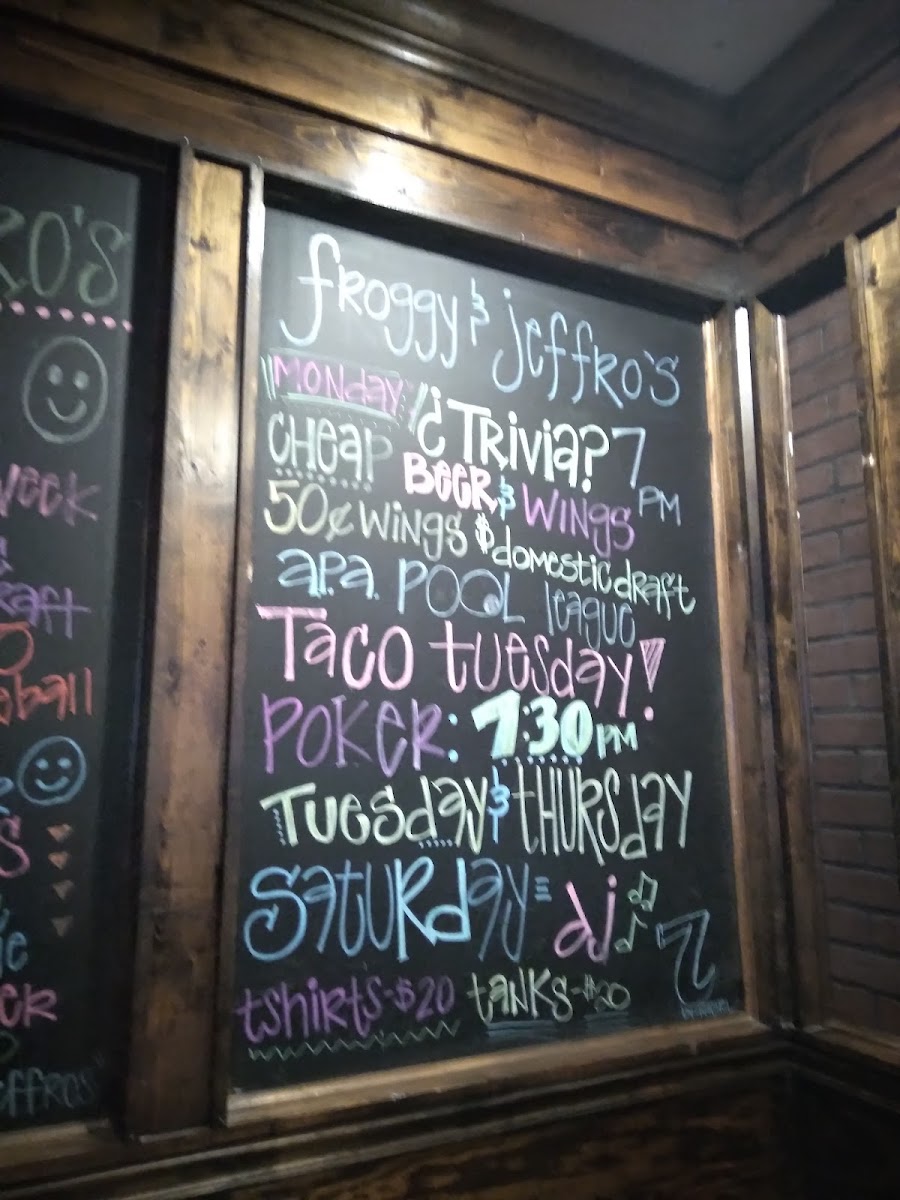 RO'S
week
Raft
ball
effros"
froggy & jeffro's
"Monday" ¿Trivia? 7 PM
Cheap Beer & Wings
50¢ wings $ domestic draft
a.p.a. Pool league
Taco tuesday!
Poker: 7:30 PM
Tuesday & Thursday
Saturday = dj
tshirts-$20 tanks-$20